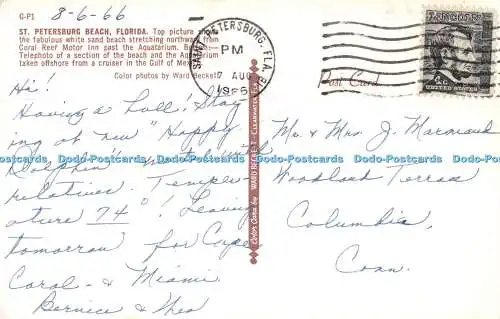 G-P1
8-6-66
ST. PETERSBURG BEACH, FLORIDA. Top picture
the fabulous white sand beach stretching northward from
Coral Reef Motor Inn past the Aquarium. B
Telephoto of a section of the beach and the A
taken offshore from a cruiser in the Gulf of Me
Color photos by Ward Beckett
SAINT PETERSBURG, FLA.
PM
7 AUG
1966
LINCOLN
4c
UNITED STATES
Post Card
Color Card by WARD BECKETT - CLEARWATER, FLA.
Hi!
Having a ball! Stay-
ing at new "Happy
Dolphin"
relatives. Temper-
ature 74°! Leaving
tomorrow for Cape
Coral & Miami
Bernice & Theo
Mr. & Mrs. J.
Woodland Terrace
Columbia,
Conn.
Dodo-Postcards Dodo-Postcards Dodo-Postcards Dodo-Postcards Dodo-Postcards